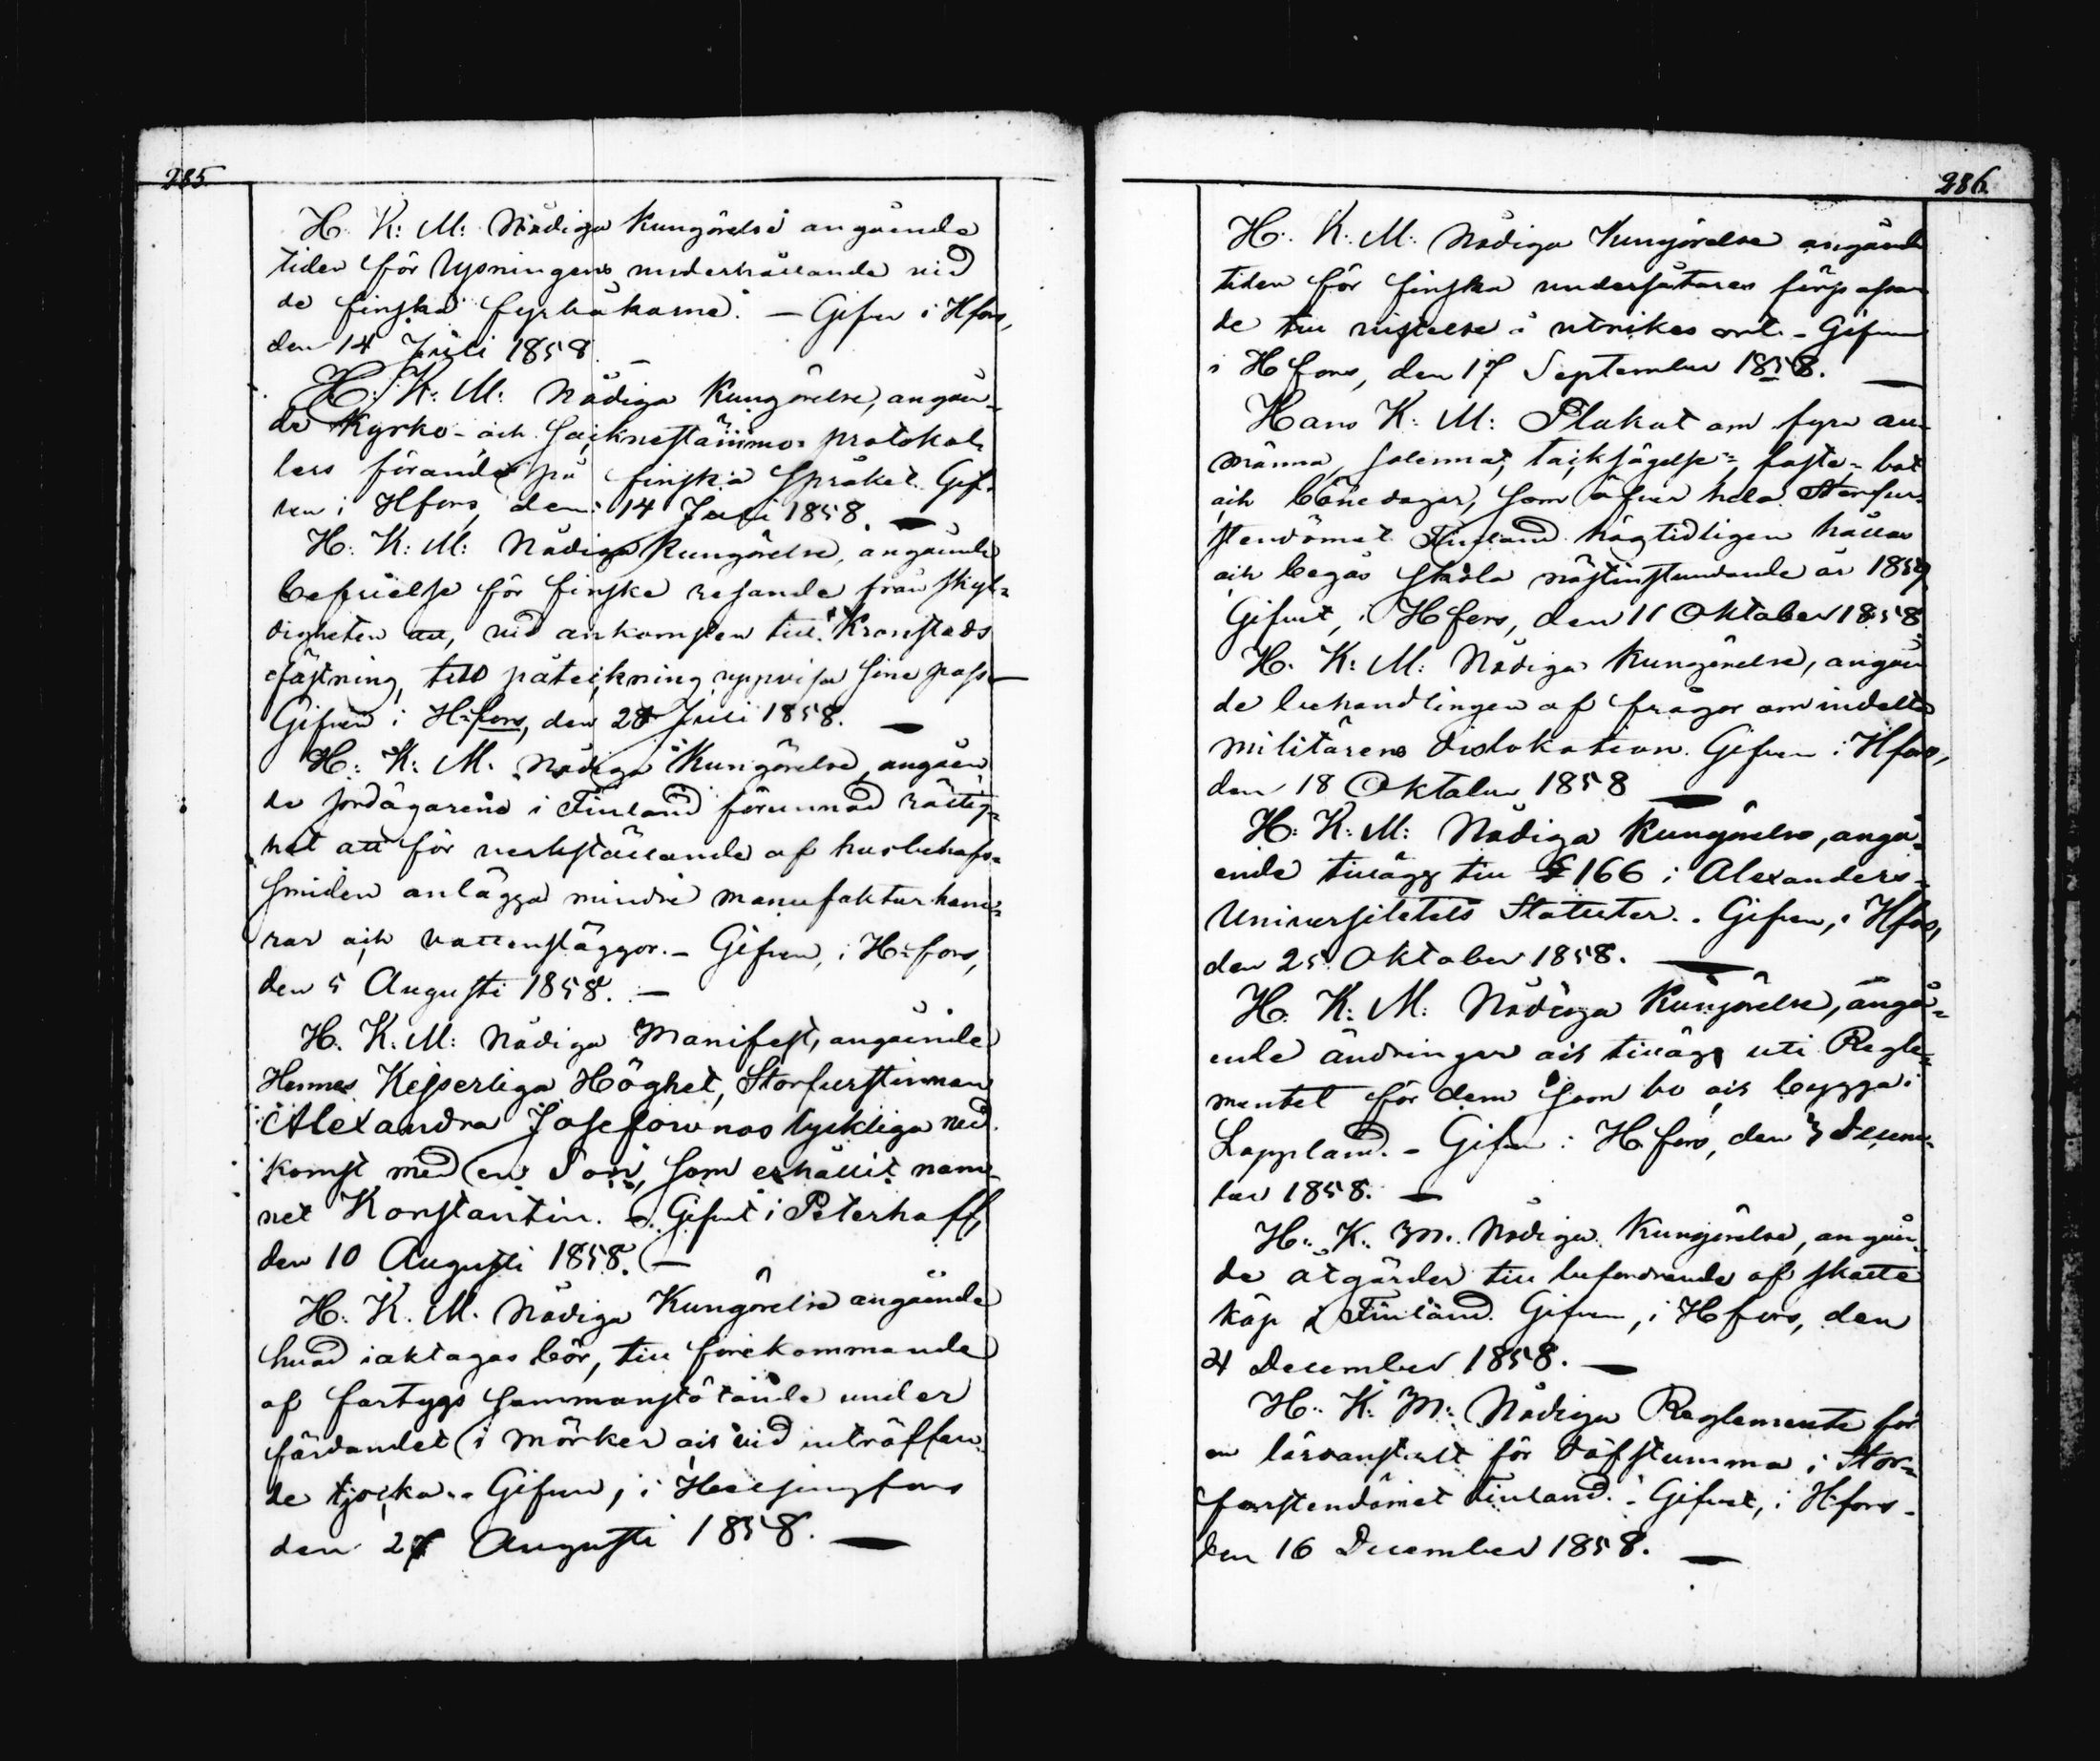 285.
H. K: M: Nådiga Kungörelse angående
tiden för lysningens underhållande vid
de finska fyrbåkarne. — Gifven i Hfors,
den 14 Juli 1858. —
H: K: M: Nådiga Kungörelse, angåen-
de Kyrko- och Socknestämmo- protokol-
lers förande på finska Språket. Gif-
ven i Hfors, den 14 Juli 1858. —
H: K: M: Nådiga Kungörelse, angående
befrielse för finske resande från skyl-
digheten att, vid ankomsten till Kronstads
fästning, till påteckning uppvisa sina pass —
Gifven i H:fors, den 28 Juli 1858. —
H: K: M: Nådiga Kungörelse, angåen
de jordägarene i Finland förunnad rättig-
het att för verkställande af husbehofs-
smiden anlägga mindre manufakturham-
rar och vattensläggor. — Gifven, i H:fors,
den 5 Augusti 1858. —
H. K: M: Nådiga Manifest, angående
Hennes Kejserliga Höghet, Storfurstinnan
Alexandra Josefownas lyckliga ned-
komst med en Son, som erhållit nam-
net Konstantin. — Gifvet i Peterhoff,
den 10 Augusti 1858. —
H. K. M. Nådiga Kungörelse angående
hvad iakttagas bör, till förekommande
af fartygs sammanstötande under
färdandet i mörker och vid inträffan-
de tjocka. - Gifven, i Helsingfors
den 27 Augusti 1858. —
286.
H:. K:. M:. Nådiga Kungörelse angående
tiden för finska undersåtares förpassan-
de till vistelse å utrikes ort. - Gifven
i Hfors, den 17 September 1858. —
Hans K: M: Plakat om fyra all-
männa, solenna, tacksägelse-, faste-, bot
och bönedagar, som öfver hela Storfur-
stendömet Finland högtidligen hållas
och begås skola nästinstundande år 1859
Gifvet, i Hfors, den 11 Oktober 1858.
H. K: M: Nådiga Kungörelse, angåen
de behandlingen af frågor om indelta
militärens dislokation. Gifven i Hfors,
den 18 Oktober 1858 —
H: K: M: Nådiga Kungörelse, angå-
ende tillägg till § 166 i Alexanders-
Universitetets Statuter. - Gifven, i Hfors,
den 25 Oktober 1858. —
H. K: M: Nådiga Kungörelse, angå-
ende ändringar och tillägg uti Regle-
mentet för dem som bo och bygga i
Lappland. - Gifven i Hfors, den 3 Decem-
ber 1858. —
H:. K. M. Nådiga Kungörelse, angåen-
de åtgärder till befordrande af skatte
köp i Finland. Gifven, i Hfors, den
21 December 1858. —
H:. K: M: Nådiga Reglemente för
en läroanstalt för döfstumma i Stor-
furstendömet Finland. - Gifvet, i Hfors -
den 16 December 1858. —